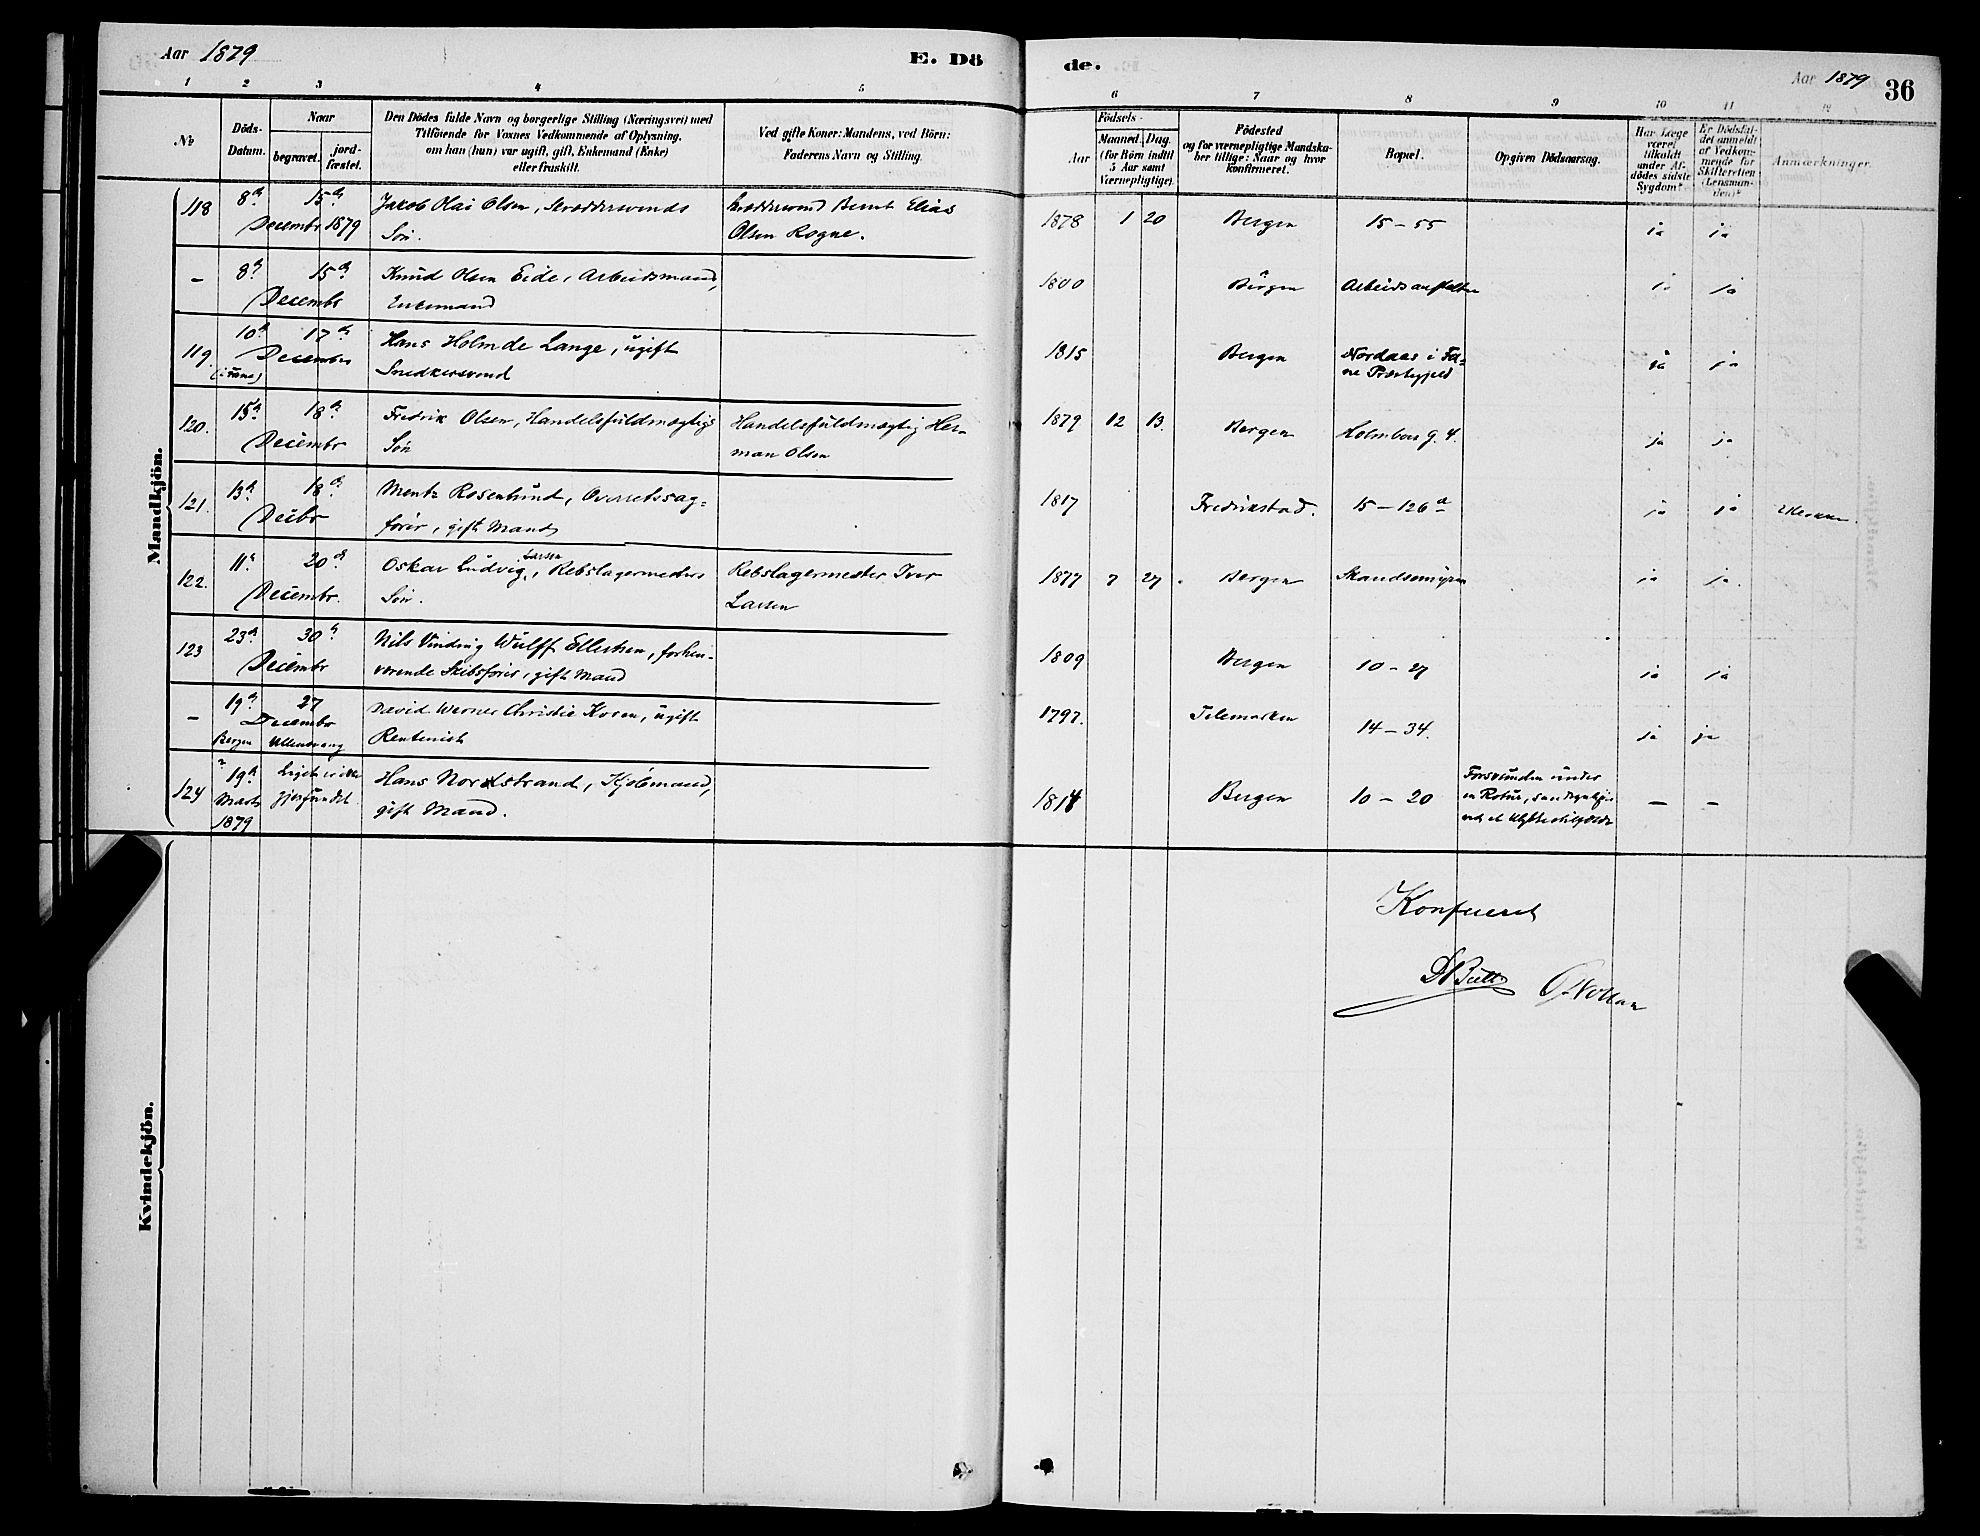 Aar 1879
E. Dö
1 2 3 4 5
№
Döds-
Datum.
Naar
begravet.
jord-
fæstet.
Den Dödes fulde Navn og borgerlige Stilling (Næringsvei) med
Tilföiende for Voxnes Vedkommende af Oplysning,
om han (hun) var ugift, gift, Enkemand (Enke)
eller fraskilt.
Ved gifte Koner: Mandens, ved Börn:
Faderens Navn og Stilling.
Mandkjön.
118 8de 15de Decembr 1879
Jakob Olai Olsen, Skræddersvends
Sön.
Skræddersvend Bernt Elias
Olsen Rogne.
- 8de 15de Decembr
Knud Olsen Eide, Arbeidsmand,
Enkemand
119 10de 17de December
(i Fane)
Hans Holmde Lange, ugift
Snedkersvend
120. 15de 18de Decembr
Fredrik Olsen, Handelsfuldmægtigs
Sön
Handelsfuldmægtig Her-
man Olsen
121. 13de 18de Decbr
Mentz Rosenlund, Overretssag-
förer, gift Mand
122. 11te 20de Decembr.
Oskar Ludvig Larsen, Rebslagermesters
Sön.
Rebslagermester Iver
Larsen
123 23de 30te Decembr
Nils Vinding Wulff Ellertsen, forhen-
værende Skibsförer, gift Mand
- 19de 27 Decembr
Bergen Ullensvang
David Werner Christie Koren, ugift
Rentenist
124 19de Marts 1879
Liget er ikke
gjenfundet
Hans Nordstrand, Kjöbmand,
gift Mand.
Kvindekjön.
de.
Aar 1879
36
6 7 8 9 10 11 12
Födsels-
Aar
Maaned. Dag.
(for Börn indtil
5 Aar samt
Værnepligtige).
Födested
og for værnepligtige Mandska-
ber tillige: Naar og hvor
konfirmeret.
Bopæl.
Opgiven Dödsaarsag.
Har Læge
været
tilkaldt
under Af-
dödes sidste
Sygdom?
Er Dödsfal-
det anmeldt
af Vedkom-
mende for
Skifteretten
(Lensman-
den)?
Anmærkninger.
1878 1 20 Bergen 15 - 55 ja ja
1800 Bergen Arbeidsanstalten ja ja
1815 Bergen Nordaas i Fa-
ne Præstegjeld ja ja
1879 12 13. Bergen Holmboes G. 4. ja ja
1817 Fredrikstad. 15 - 126 a ja ja
1877 7 27 Bergen Skandsemyren ja ja.
1809 Bergen 10 - 27 ja ja
1797. Telemarken 14 - 34. ja ja
1814 Bergen 10 - 20
Forsvunden under
en Rotur,
- -
Konfereret